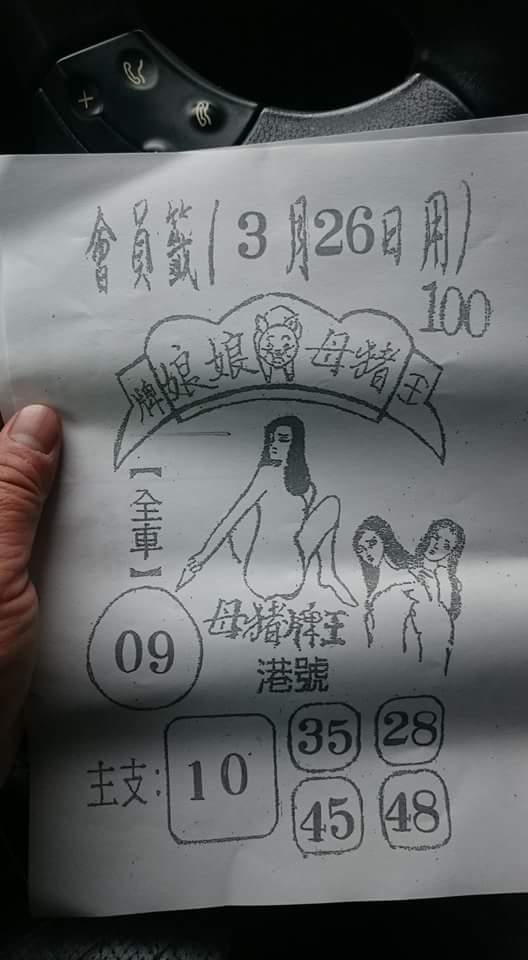 會員籤(3月26日用)
100
牌娘娘母豬王
【全車】
09
母豬牌王
港號
35 28
主支: 10
45 48